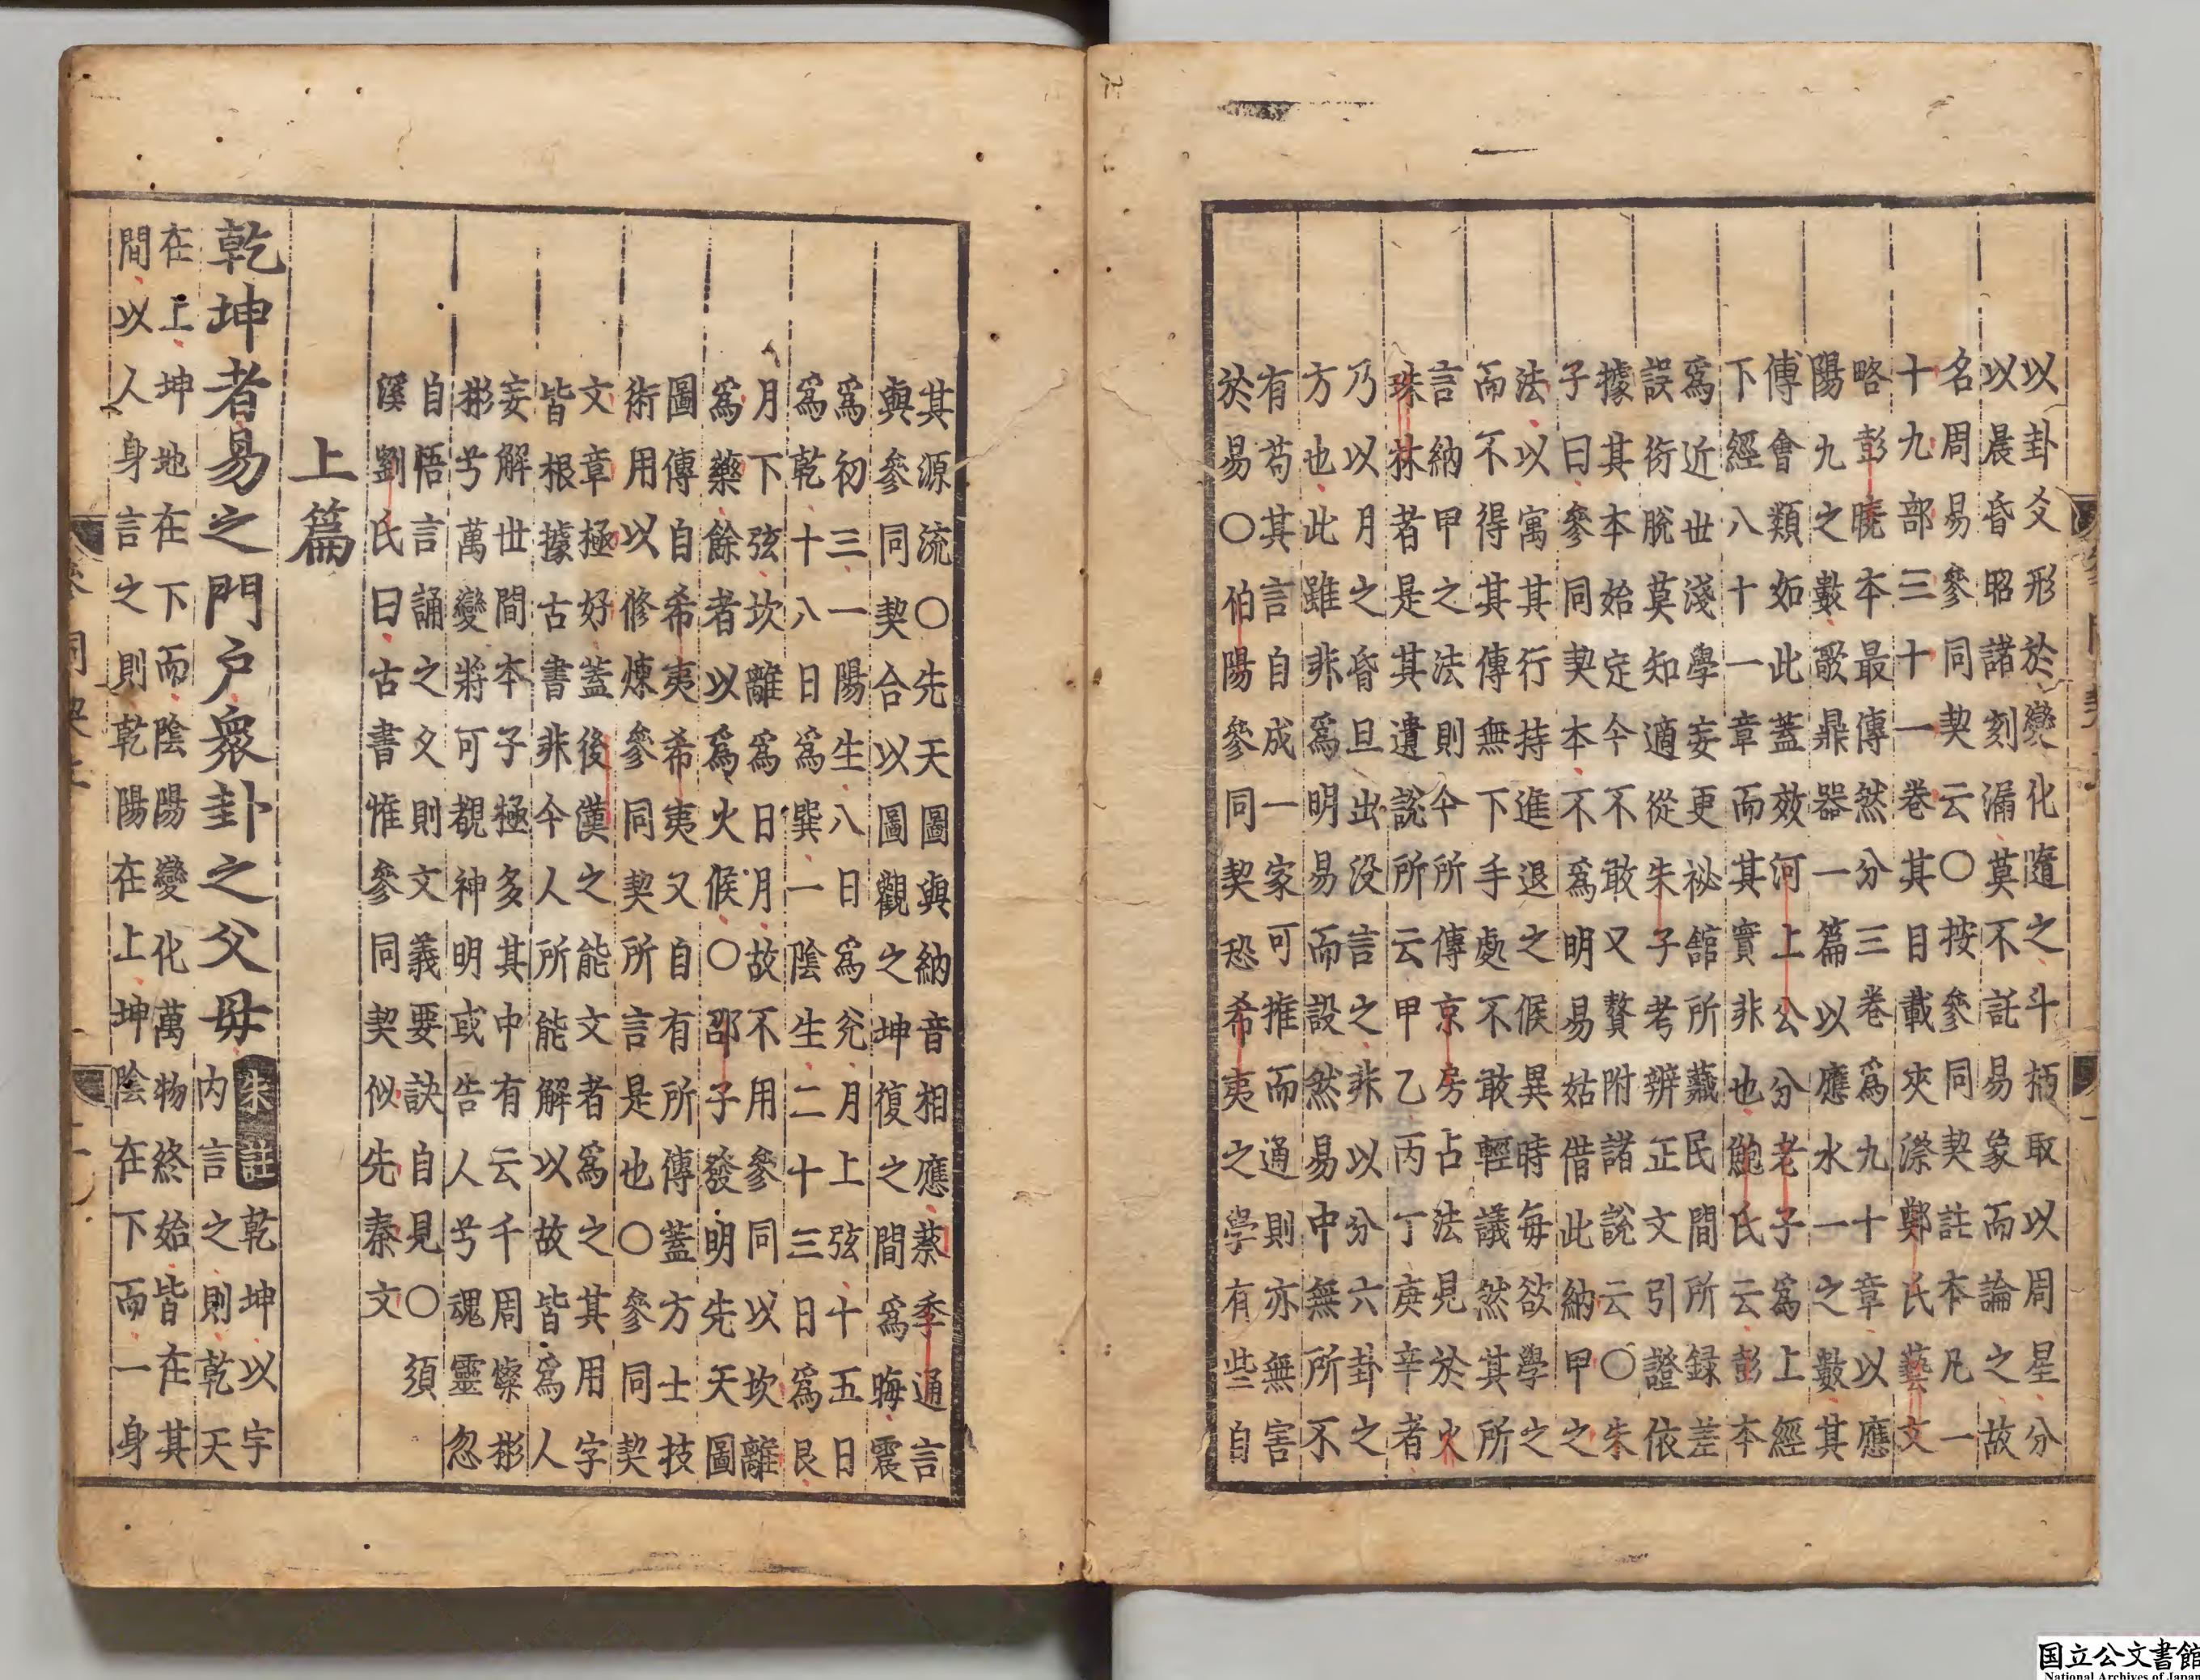 以卦爻形於變化隨之斗柄取以周星分
以晨昏昭諸刻漏莫不託易象而論之故
名周易參同契云〇按參同契註本凡一
十九部三十一卷其目載夾漈鄭氏藝文
略彭曉本最傳然分三卷爲九十章以應
陽九之數歌鼎器一篇以應水一之數其
傅會類如此蓋效河上公分老子爲上經
下經八十一章而其實非也鮑氏云彭本
爲近世淺學妄更祕舘所藏民間所録差
誤衍脫莫知適從朱子考辨正文引證依
據其本始定今不敢又贅附諸說云〇朱
子曰參同契本不爲明易姑借此納甲之
法以寓其行持進退之候異時每欲學之
而不得其傳無下手處不敢輕議然其所
言納甲之法則今所傳京房占法見於火
珠林者是其遺說所云甲乙丙丁庚辛者
乃以月之昏旦出没言之非以分六卦之
方也此雖非爲明易而設然易中無所不
有苟其言自成一家可推而通則亦無害
於易〇伯陽參同契恐希夷之學有些自
其源流〇先天圖與納音相應蔡季通言
與參同契合以圖觀之坤復之間爲晦震
爲初三一陽生八日爲兊月上弦十五日
爲乾十八日爲巽一陰生二十三日爲艮
月下弦坎離爲日月故不用參同以坎離
爲藥餘者以爲火候〇邵子發明先天圖
圖傳自希夷希夷又自有所傳蓋方士技
術用以修煉參同契所言是也〇參同契
文章極好蓋後漢之能文者爲之其用字
皆根據古書非今人所能解以故皆爲人
妄解世間本子極多其中有云千周燦彬
彬兮萬變將可覩神明或告人兮魂靈忽
自悟言誦之久則文義要訣自見〇須
溪劉氏曰古書惟參同契似先秦文
上篇
乾坤者易之門戶衆卦之父母
朱註
乾坤以宇
内言之則乾天
在上坤地在下而陰陽變化萬物終始皆在其
間以人身言之則乾陽在上坤陰在下而一身
国立公文書館
National Archives of Japan